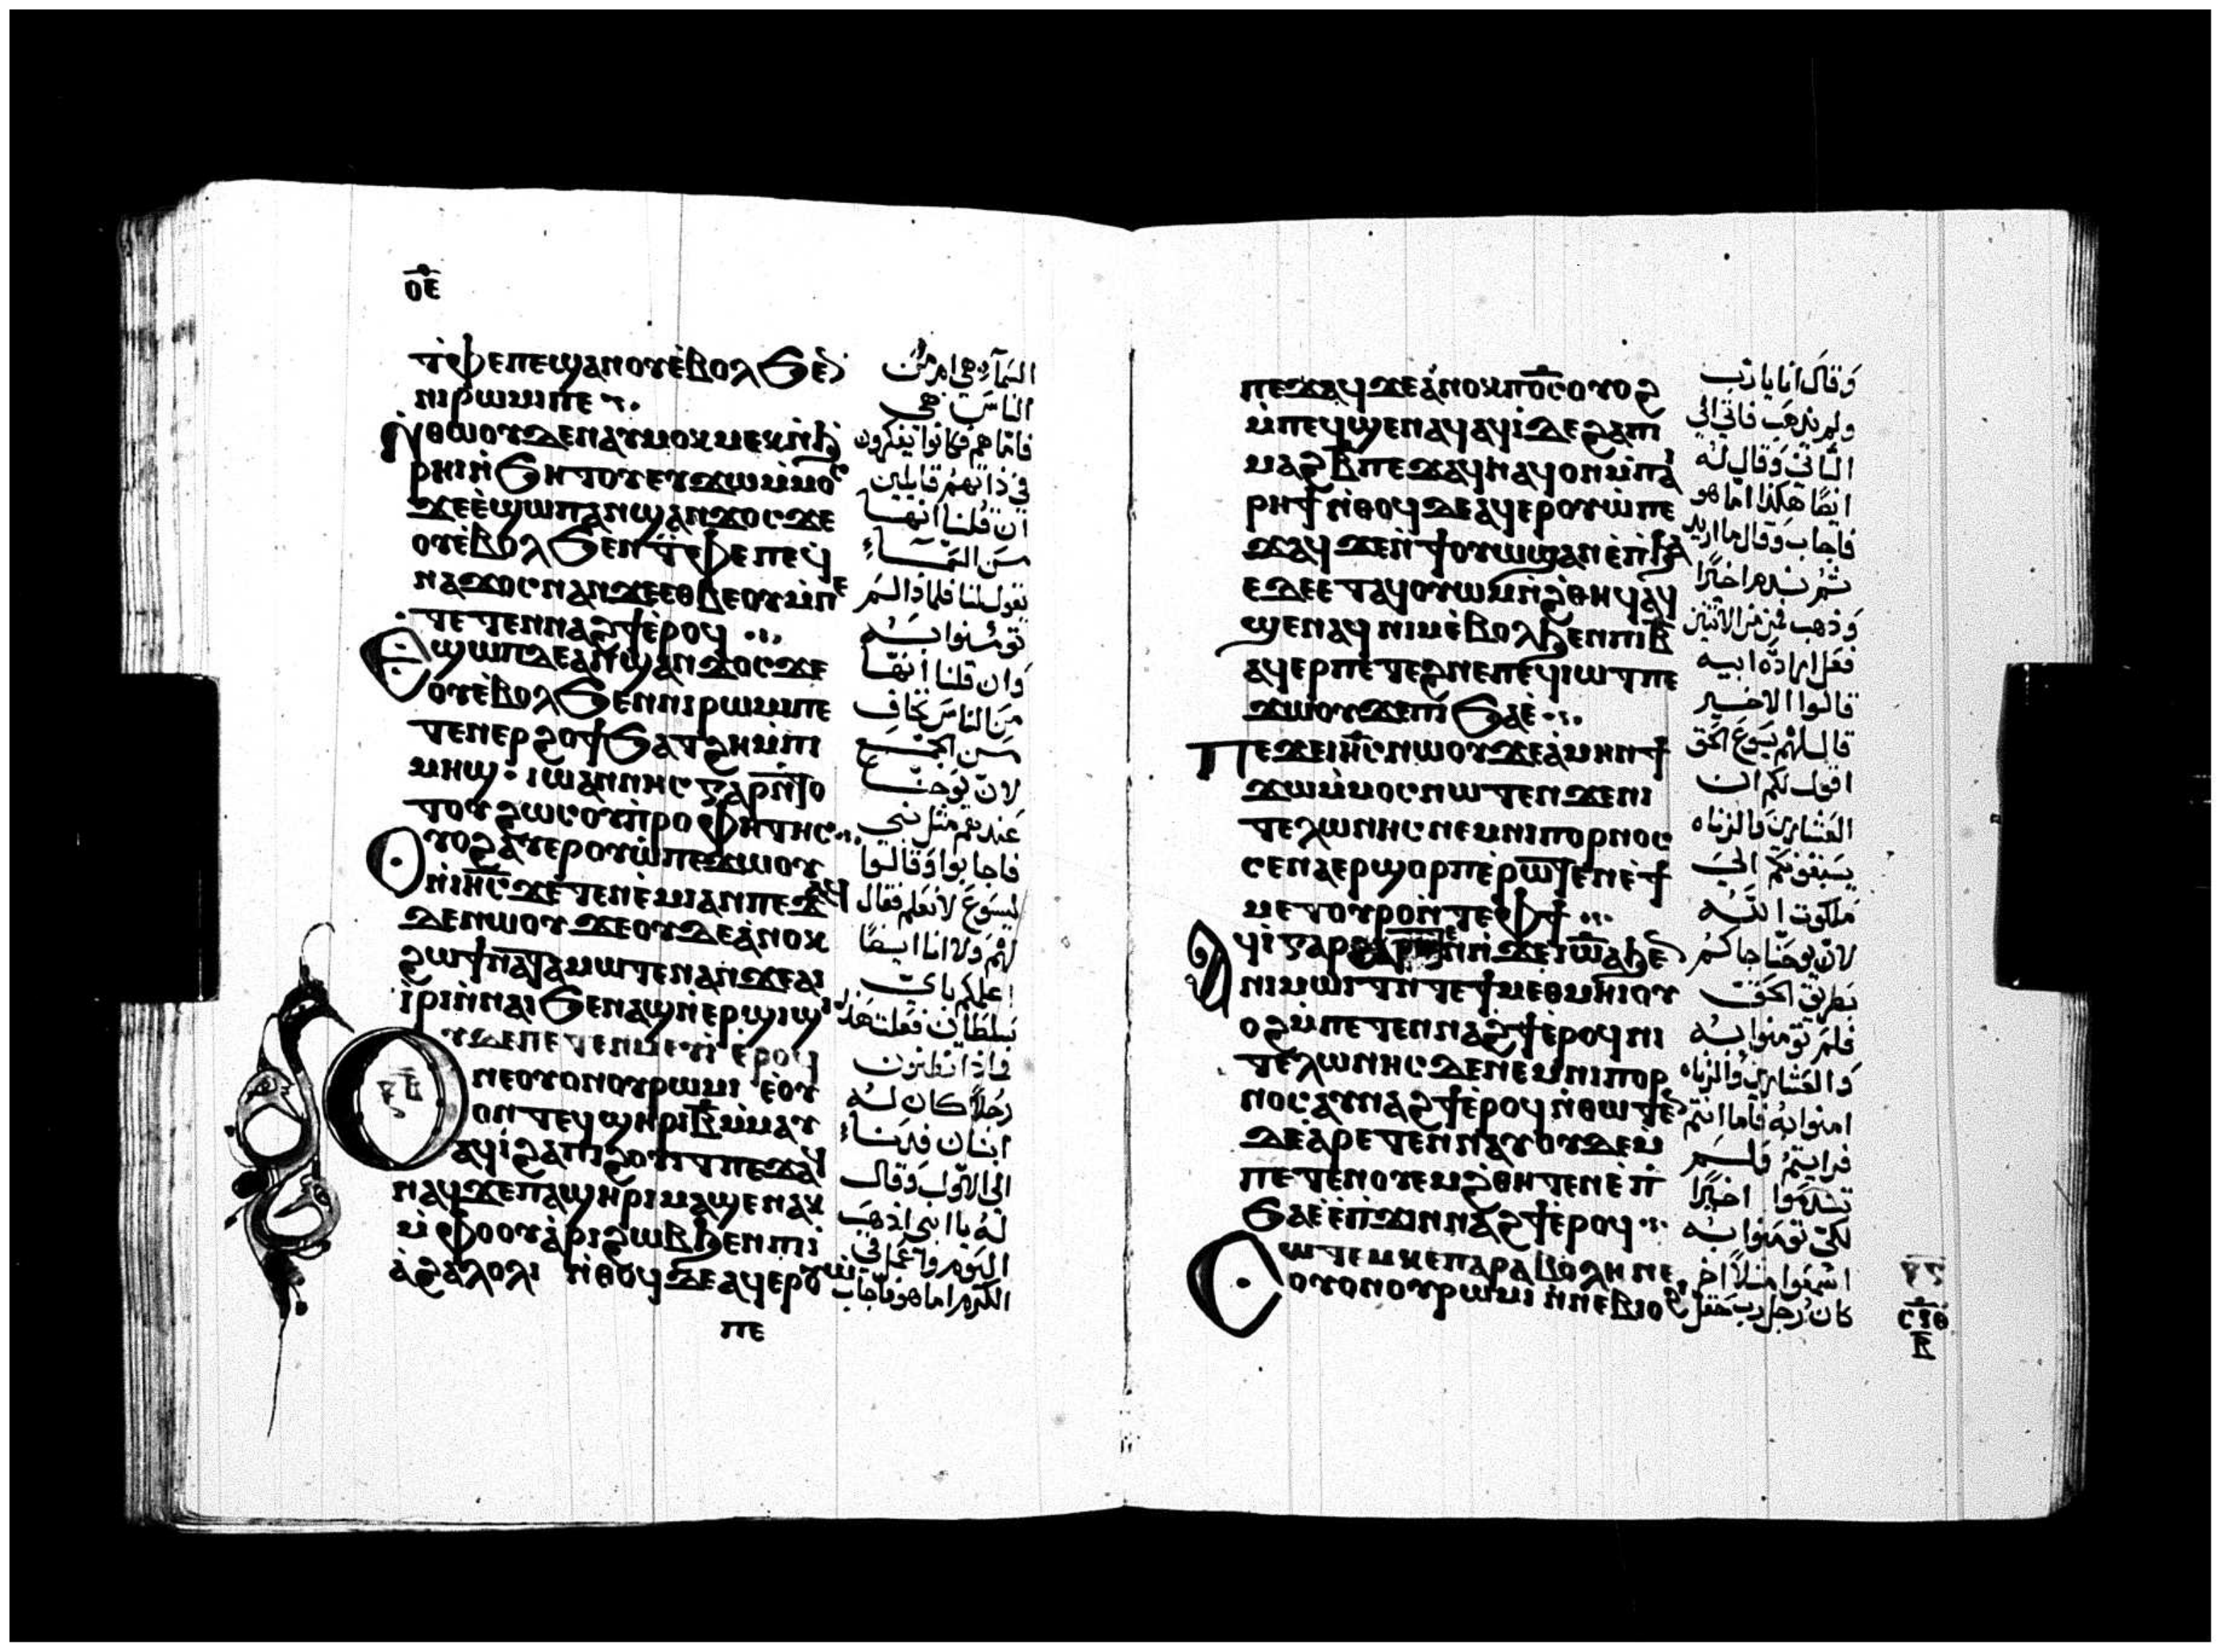 ⲟⲉ
ⲧ̀ⲫⲉⲡⲉϣⲁⲛⲟⲩⲉ̀ⲃⲟⲗϧⲉⲛ
ⲛⲓⲣⲱⲙⲓⲡⲉ
ⲛ̀ⲑⲱⲟⲩⲇⲉⲛⲁⲩⲙⲟⲕⲙⲉⲕⲛ̀ϩ
ⲣⲏⲓⲛ̀ϧⲏⲧⲟⲩⲉⲩϫⲱⲙ̀ⲙⲟⲥ
ϫⲉⲉ̀ϣⲱⲡⲁⲛϣⲁⲛϫⲟⲥϫⲉ
ⲟⲩⲉ̀ⲃⲟⲗϧⲉⲛⲧ̀ⲫⲉⲡⲉϥ
ⲛⲁϫⲟⲥⲛⲁⲛϫⲉⲉⲑⲃⲉⲟⲩⲙ̀ⲡⲉ
ⲧⲉⲧⲉⲛⲛⲁϩϯⲉ̀ⲣⲟϥ
ⲉϣⲱⲡⲇⲉⲁⲛϣⲁⲛϫⲟⲥϫⲉ
ⲟⲩⲉ̀ⲃⲟⲗϧⲉⲛⲛⲓⲣⲱⲙⲓⲡⲉ
ⲧⲉⲛⲉⲣϩⲟϯϧⲁⲧϩⲏⲙ̀ⲡⲓ
ⲙⲏϣ· ⲓⲱⲁⲛⲛⲏⲥⲅⲁⲣⲛ̀ⲧⲟ
ⲧⲟⲩϩⲱⲥⲟⲩⲡ̀ⲣⲟⲫⲏⲧⲏⲥ
ⲟⲩⲟϩⲁⲩⲉⲣⲟⲩⲱ̀ⲡⲉϫⲱⲟⲩ
ⲛ̀ⲓⲏ̅ⲥ̅ϫⲉⲧⲉⲛⲉ̀ⲙⲓⲁⲛⲡⲉϫⲁϥ
ⲇⲉⲛⲱⲟⲩϫⲉⲟⲩⲇⲉⲁ̀ⲛⲟⲕ
ϩⲱϯⲛⲁⲧⲁⲙⲱⲧⲉⲛⲁⲛϫⲉⲁⲓ
ⲓ̀ⲣⲓⲛ̀ⲛⲁⲓϧⲉⲛⲁϣⲛ̀ⲉⲣϣⲓϣⲓ
ⲟⲩⲇⲉⲡⲉⲧⲉⲛⲙⲉⲩⲓ̀ⲉ̀ⲣⲟϥ
ⲛⲉⲟⲩⲟⲛⲟⲩⲣⲱⲙⲓ ⲉ̀ⲟⲩ
ⲟⲛⲧⲉϥϣⲏⲣⲓⲃ̅ⲙ̀ⲙⲁⲩ
ⲁϥⲓ̀ϩⲁⲡⲓϩⲟⲩⲓⲧⲡⲉϫⲁϥ
ⲛⲁϥϫⲉⲡⲁϣⲏⲣⲓⲙⲁϣⲉⲛⲁⲕ
ⲙ̀ⲫⲟⲟⲩⲁ̀ⲣⲓϩⲱⲃϧⲉⲛⲡⲓ
ⲁ̀ϩⲁⲗⲟⲗⲓ ⲛ̀ⲑⲟϥⲇⲉⲁϥⲉⲣⲟⲩⲱ̀
ⲡⲉ
السمآء هي ام من
الناس هي
فاما هم فكانوا يفكرون
في ذاتهم قايلين
ان قلنا انها
من السماء
يقول لنا فلماذا لم
تومنوا به
وان قلنا انها
من الناس نخاف
من الجمع
لان يوحنا
عندهم مثل نبي
فاجابوا وقالوا
ليسوع لا نعلم فقال
لهم ولا انا ايضا
اعلمكم باي
سلطان فعلت هذا
فماذا تظنون
رجلا كان له
ابنان فدنا
الى الاول وقال
له يا ابني اذهب
اليوم واعمل في
الكرم اما هو فاجاب
ⲡⲉϫⲁϥϫⲉⲁ̀ⲛⲟⲕⲡⲟ̅ⲥ̅ⲟⲩⲟϩ
ⲙ̀ⲡⲉϥϣⲉⲛⲁϥⲁϥⲓ̀ⲇⲉϩⲁⲡⲓ
ⲙⲁϩⲃ̅ⲡⲉϫⲁϥⲛⲁϥⲟⲛⲙ̀ⲡⲁⲓ
ⲣⲏϯⲛ̀ⲑⲟϥⲇⲉⲁϥⲉⲣⲟⲩⲱ̀ⲡⲉ
ϫⲁϥϫⲉⲛ̀ϯⲟⲩⲱϣⲁⲛⲉ̀ⲡ̀ϧⲁ
ⲉⲇⲉⲉⲧⲁϥⲟⲩⲱⲙⲛ̀ϩⲑⲏϥⲁϥ
ϣⲉⲛⲁϥ ⲛⲓⲙⲉ̀ⲃⲟⲗϧⲉⲛⲡⲓⲃ̅
ⲁϥⲉⲣⲡⲉⲧⲉϩⲛⲉⲡⲉϥⲓⲱⲧⲡⲉ
ϫⲱⲟⲩϫⲉⲡⲓϧⲁⲉ̀
ⲡⲉϫⲉⲓⲏ̅ⲥ̅ⲛⲱⲟⲩϫⲉⲁ̀ⲙⲏⲛϯ
ϫⲱⲙ̀ⲙⲟⲥⲛⲱⲧⲉⲛϫⲉⲛⲓ
ⲧⲉⲗⲱⲛⲏⲥⲛⲉⲙⲛⲓⲡⲟⲣⲛⲟⲥ
ⲥⲉⲛⲁⲉⲣϣⲟⲣⲡⲉ̀ⲣⲱⲧⲉⲛⲉ̀ϯ
ⲙⲉⲧⲟⲩⲣⲟⲛ̀ⲧⲉⲫϯ
ⲁϥⲓ̀ⲅⲁⲣ ⲛ̀ϫⲉⲓⲱ̅ⲁϧⲉⲛ
ⲛⲓⲙⲱⲓⲧⲛ̀ⲧⲉϯⲙⲉⲑⲙⲏⲓⲟⲩ
ⲟϩⲙ̀ⲡⲉⲧⲉⲛⲛⲁϩϯⲉ̀ⲣⲟϥⲛⲓ
ⲧⲉⲗⲱⲛⲏⲥⲇⲉⲛⲉⲙⲛⲓⲡⲟⲣ
ⲛⲟⲥⲁⲩⲛⲁϩϯⲉ̀ⲣⲟϥⲛ̀ⲑⲱⲧⲉⲛ
ⲇⲉⲁ̀ⲣⲉⲧⲉⲛⲛⲁⲩⲟⲩⲇⲉⲙ
ⲡⲉⲧⲉⲛⲟⲩⲉⲙϩ̀ⲑⲏⲧⲉⲛⲉ̀ⲡ̀
ϧⲁⲉ̀ⲉ̀ⲡ̀ϫⲓⲛⲛⲁϩϯⲉ̀ⲣⲟϥ
ⲥⲱⲧⲉⲙⲕⲉⲡⲁⲣⲁⲃⲟⲗⲏⲛⲉ
ⲟⲩⲟⲛⲟⲩⲣⲱⲙⲓ ⲛ̀ⲛⲉⲃⲓⲟϩⲓ
وقال انا يا رب
ولم يذهب فاتى الى
الثاني وقال له
ايضا هكذا اما هو
فاجاب وقال ما اريد
ثم ندم اخيرا
وذهب فمن من الاثنين
فعل ارادة ابيه
قالوا الاخير
قال لهم يسوع الحق
اقول لكم ان
العشارين والزناه
يسبقونكم الى
ملكوت الله
لان يوحنا جاكم
بطريق الحق
فلم تومنوا به
والعشارين والزناه
امنوا به فاما انتم
فرايتم فلم
تندموا اخيرا
لكي تومنوا به
اسمعوا مثلا اخر
كان رجل رب حقل
ⲥⲓⲑ
ⲃ̅